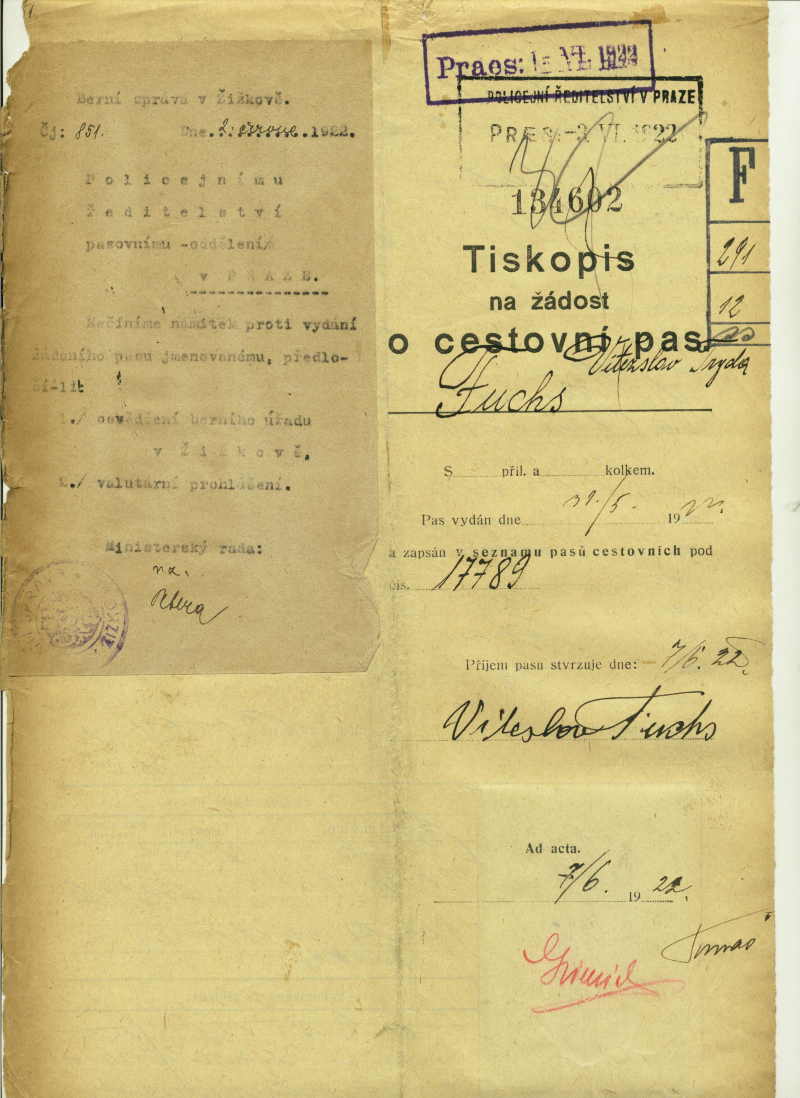 Berní správa v Žižkově.
Čj: 851. Dne .2. .1922.
Policejnímu
Ředitelství
pasovnímu -oddělení/
v PRAZE.
Nečiníme námitek proti vydání
žádaného pasu jmenovanému, předlo-
ží-lit
1./ osvědčení berního úřadu
v Žižkově,
2./ valutární prohlášení.
Ministerský rada:
ŽIŽKO
Praes: VI. 1922
POLICEJNÍ ŘEDITELSTVÍ V PRAZE
PRAES -3 VI. 1922
134602
F
291
12
Tiskopis
na žádost
o cestovní pas
Vítězslav
Fuchs
S příl. a kolkem.
Pas vydán dne 31/5. 1922.
a zapsán v seznamu pasů cestovních pod
čís. 17789
Příjem pasu stvrzuje dne: 7/6. 22.
Vítěslav Fuchs
Ad acta.
7/6. 1922.